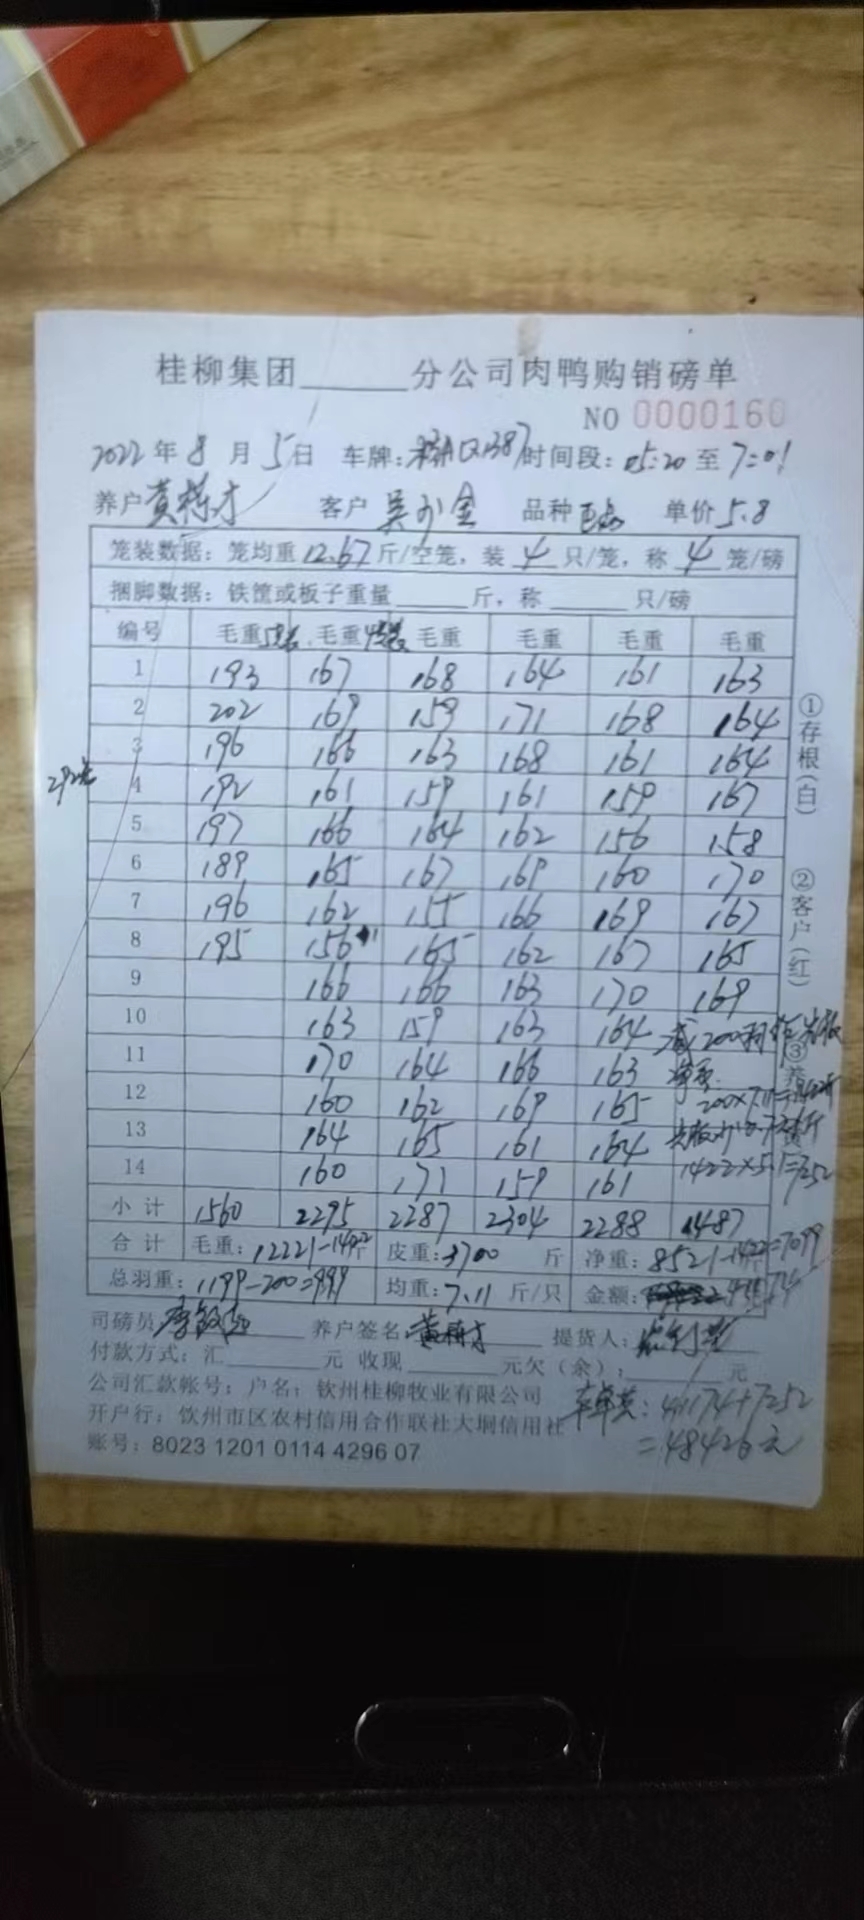 桂柳集团______分公司肉鸭购销磅单
NO 0000160
2022年8月5日 车牌: 时间段: 05:20至7:01
养户 黄 才 客户 吴 金 品种 单价5.8
笼装数据: 笼均重12.67斤/空笼, 装4只/笼, 称4笼/磅
捆脚数据: 铁筐或板子重量______斤, 称______只/磅
编号 毛重 毛重 毛重 毛重 毛重 毛重
1 193 167 168 164 161 163
2 202 169 159 171 168 164
3 196 166 163 168 161 164
4 192 161 159 161 159 167
5 197 166 164 162 156 158
6 189 165 167 169 160 170
7 196 162 155 166 169 167
8 195 156 165 162 167 165
9 166 166 163 170 169
10 163 159 163 164
11 170 164 166 163
12 160 162 169 165
13 164 165 161 164
14 160 171 159 161
小计 1560 2295 2287 2304 2288 1487
合计 毛重: 12221-1422斤 皮重: 3700 斤 净重: 8521-1422=7099
总羽重: 1199-200=999 均重: 7.11 斤/只 金额: 41174
①存根(白)
②客户(红)
③养
200×7.11=1422斤
1422×5.1=7252
司磅员 养户签名: 提货人:
付款方式: 汇______元 收现______元欠(余):______元
公司汇款帐号: 户名: 钦州桂柳牧业有限公司
开户行: 钦州市区农村信用合作联社大垌信用社
账号: 8023 1201 0114 4296 07
41174+7252
=48426元